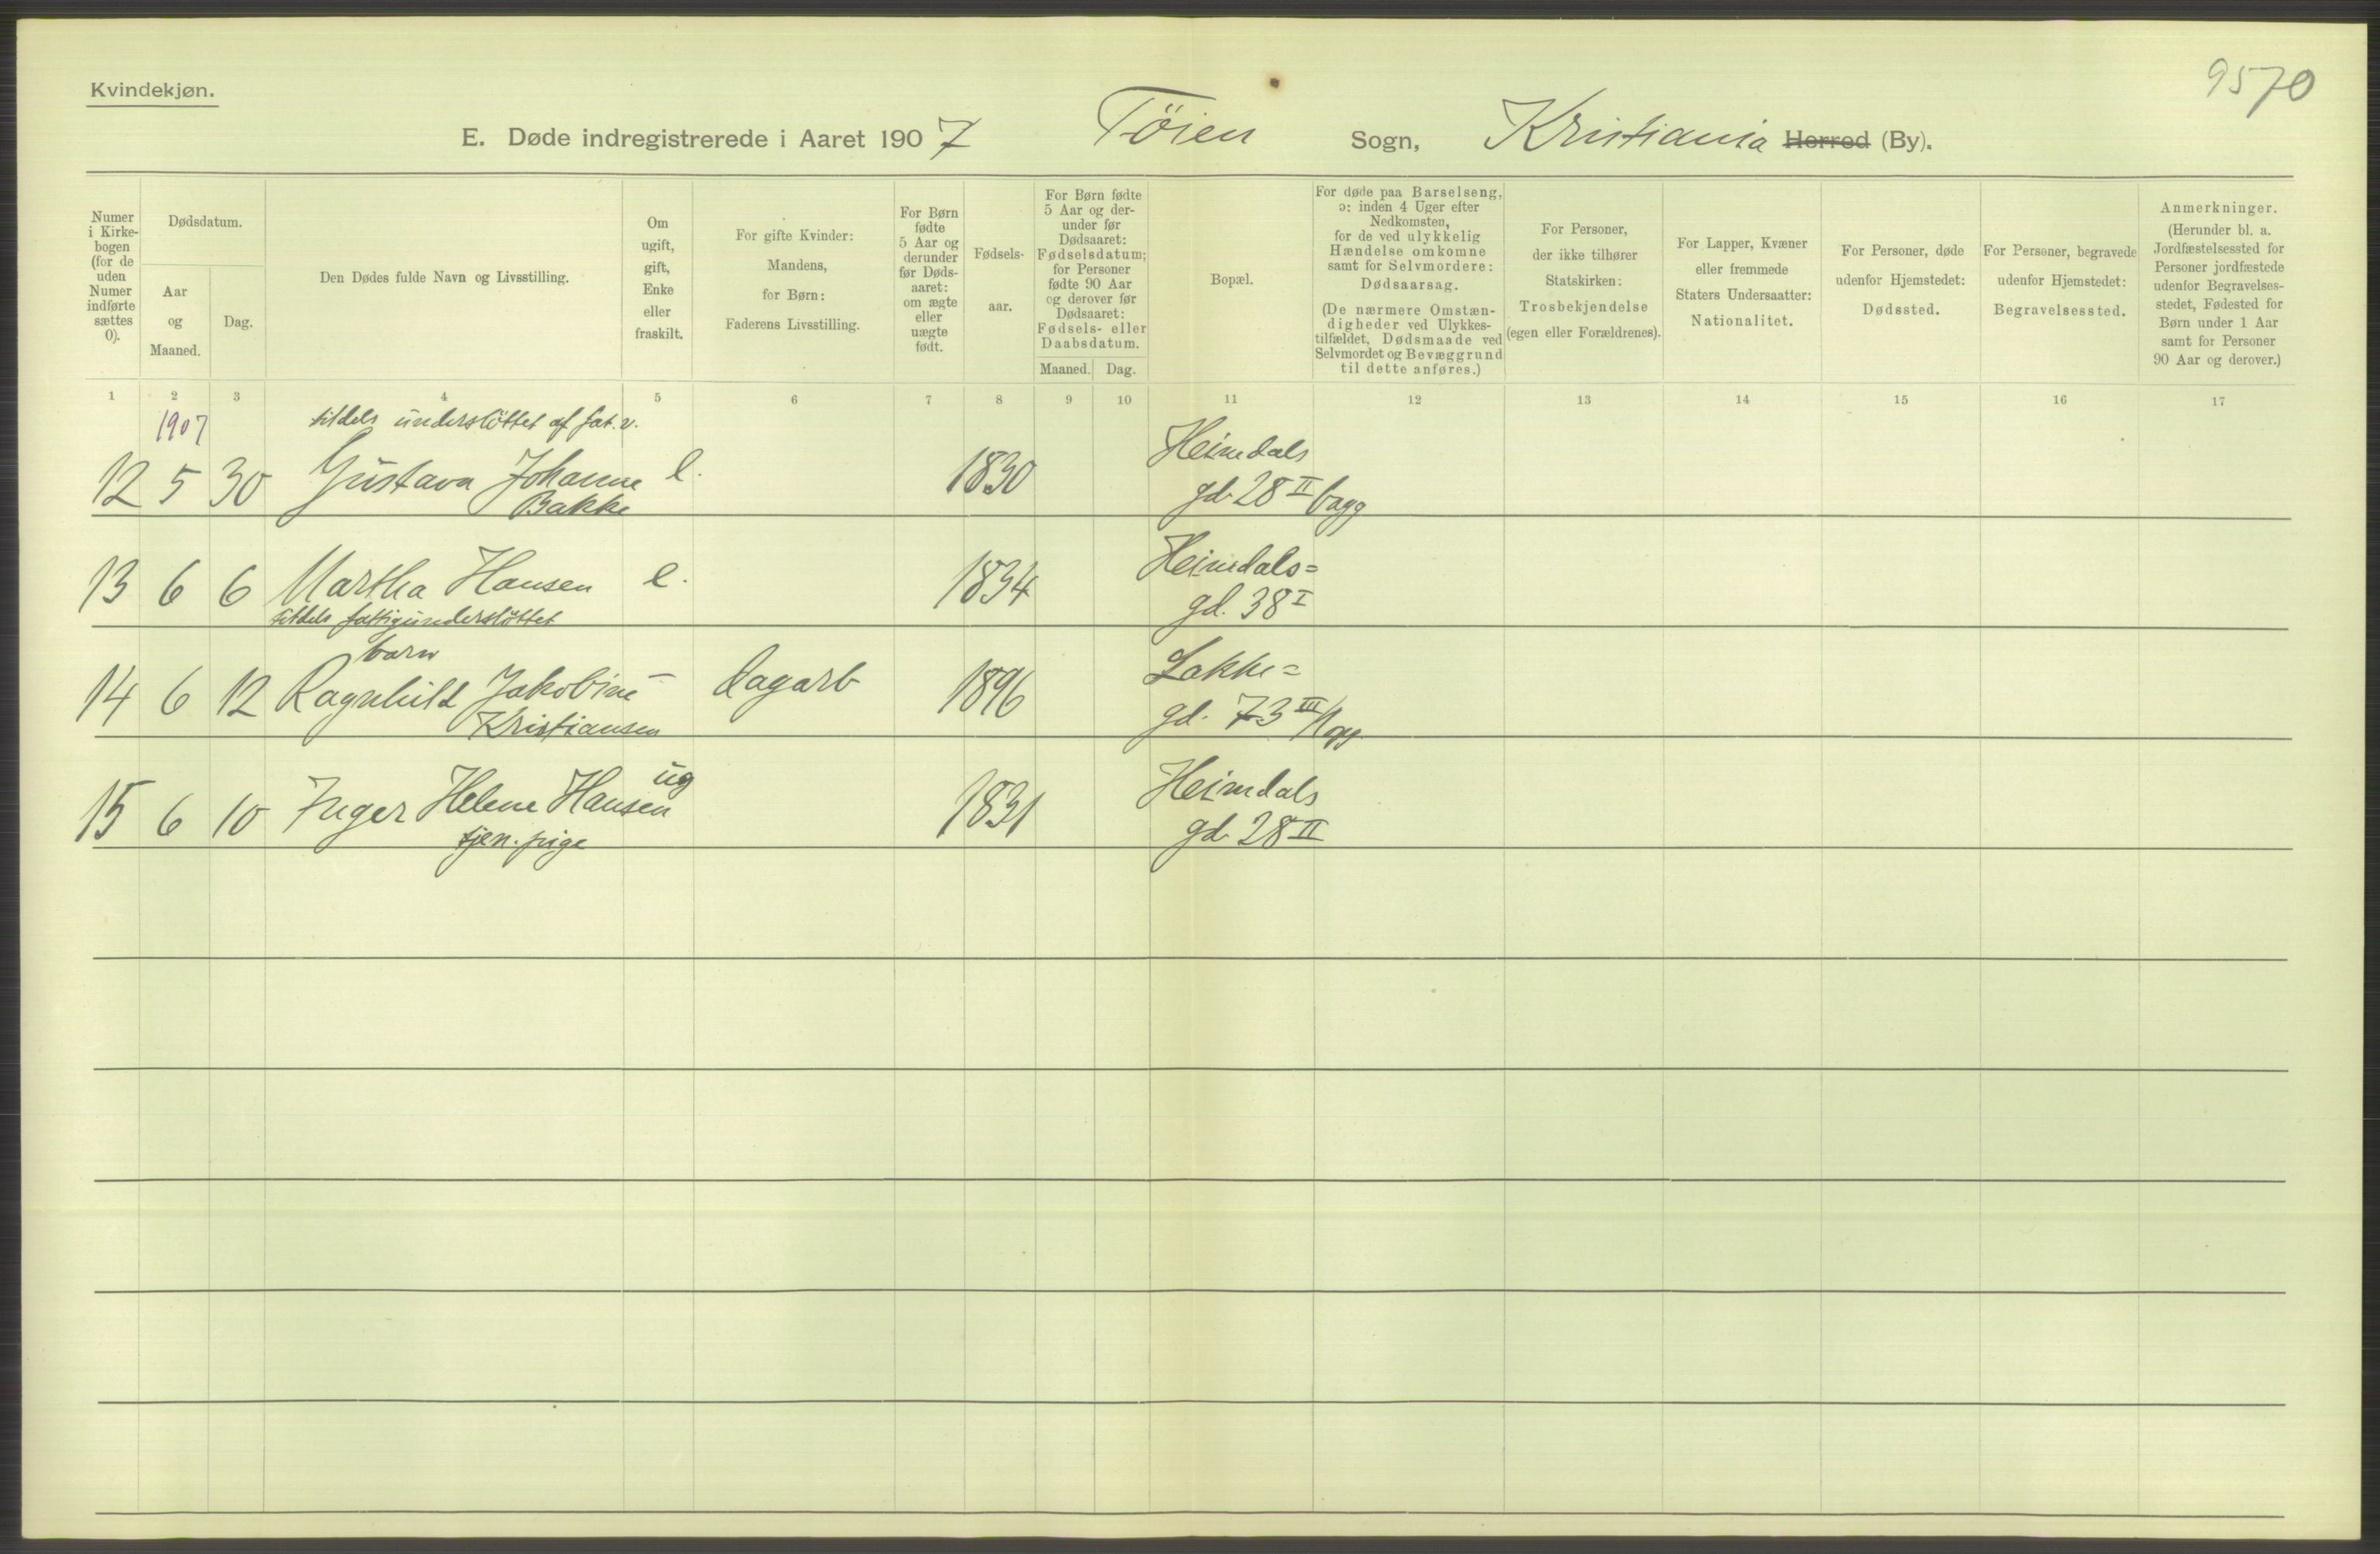 9570
Kvindekjøn.
E. Døde indregistrerede i Aaret 1907 Töien Sogn, Kristiania Herred (By).
Numer i Kirkebogen (for de uden Numer indførte sættes 0).
Dødsdatum.
Aar og Maaned.
Dag.
Den Dødes fulde Navn og Livsstilling.
Om ugift, gift, Enke eller fraskilt.
For gifte Kvinder: Mandens, for Børn: Faderens Livsstilling.
For Børn fødte 5 Aar og derunder før Dødsaaret: om ægte eller uægte født.
Fødselsaar.
For Børn fødte 5 Aar og derunder før Dødsaaret: Fødselsdatum; for Personer fødte 90 Aar og derover før Dødsaaret: Fødsels- eller Daabsdatum.
Maaned. Dag.
Bopæl.
For døde paa Barselseng, ɔ: inden 4 Uger efter Nedkomsten, for de ved ulykkelig Hændelse omkomne samt for Selvmordere: Dødsaarsag.
(De nærmere Omstændigheder ved Ulykkestilfældet, Dødsmaade ved Selvmordet og Bevæggrund til dette anføres.)
For Personer, der ikke tilhører Statskirken: Trosbekjendelse (egen eller Forældrenes).
For Lapper, Kvæner eller fremmede Staters Undersaatter: Nationalitet.
For Personer, døde udenfor Hjemstedet: Dødssted.
For Personer, begravede udenfor Hjemstedet: Begravelsessted.
Anmerkninger. (Herunder bl. a. Jordfæstelsessted for Personer jordfæstede udenfor Begravelsesstedet, Fødested for Børn under 1 Aar samt for Personer 90 Aar og derover.)
1 2 3 4 5 6 7 8 9 10 11 12 13 14 15 16 17
1907 tildels understöttet af fat.v.
12 5 30 Gustava Johanne e. 1830 Heimdals
Bakke gd. 28 II bagg
13 6 6 Martha Hansen e. 1834 Heimdals=
tildels fattigunderstöttet gd. 38 I
barn
14 6 12 Ragnhild Jakobine – dagarb 1896 Lakke=
Kristiansen gd. 73 III
15 6 10 Inger Helene Hansen ug 1831 Heimdals
tjen. pige gd. 28 II